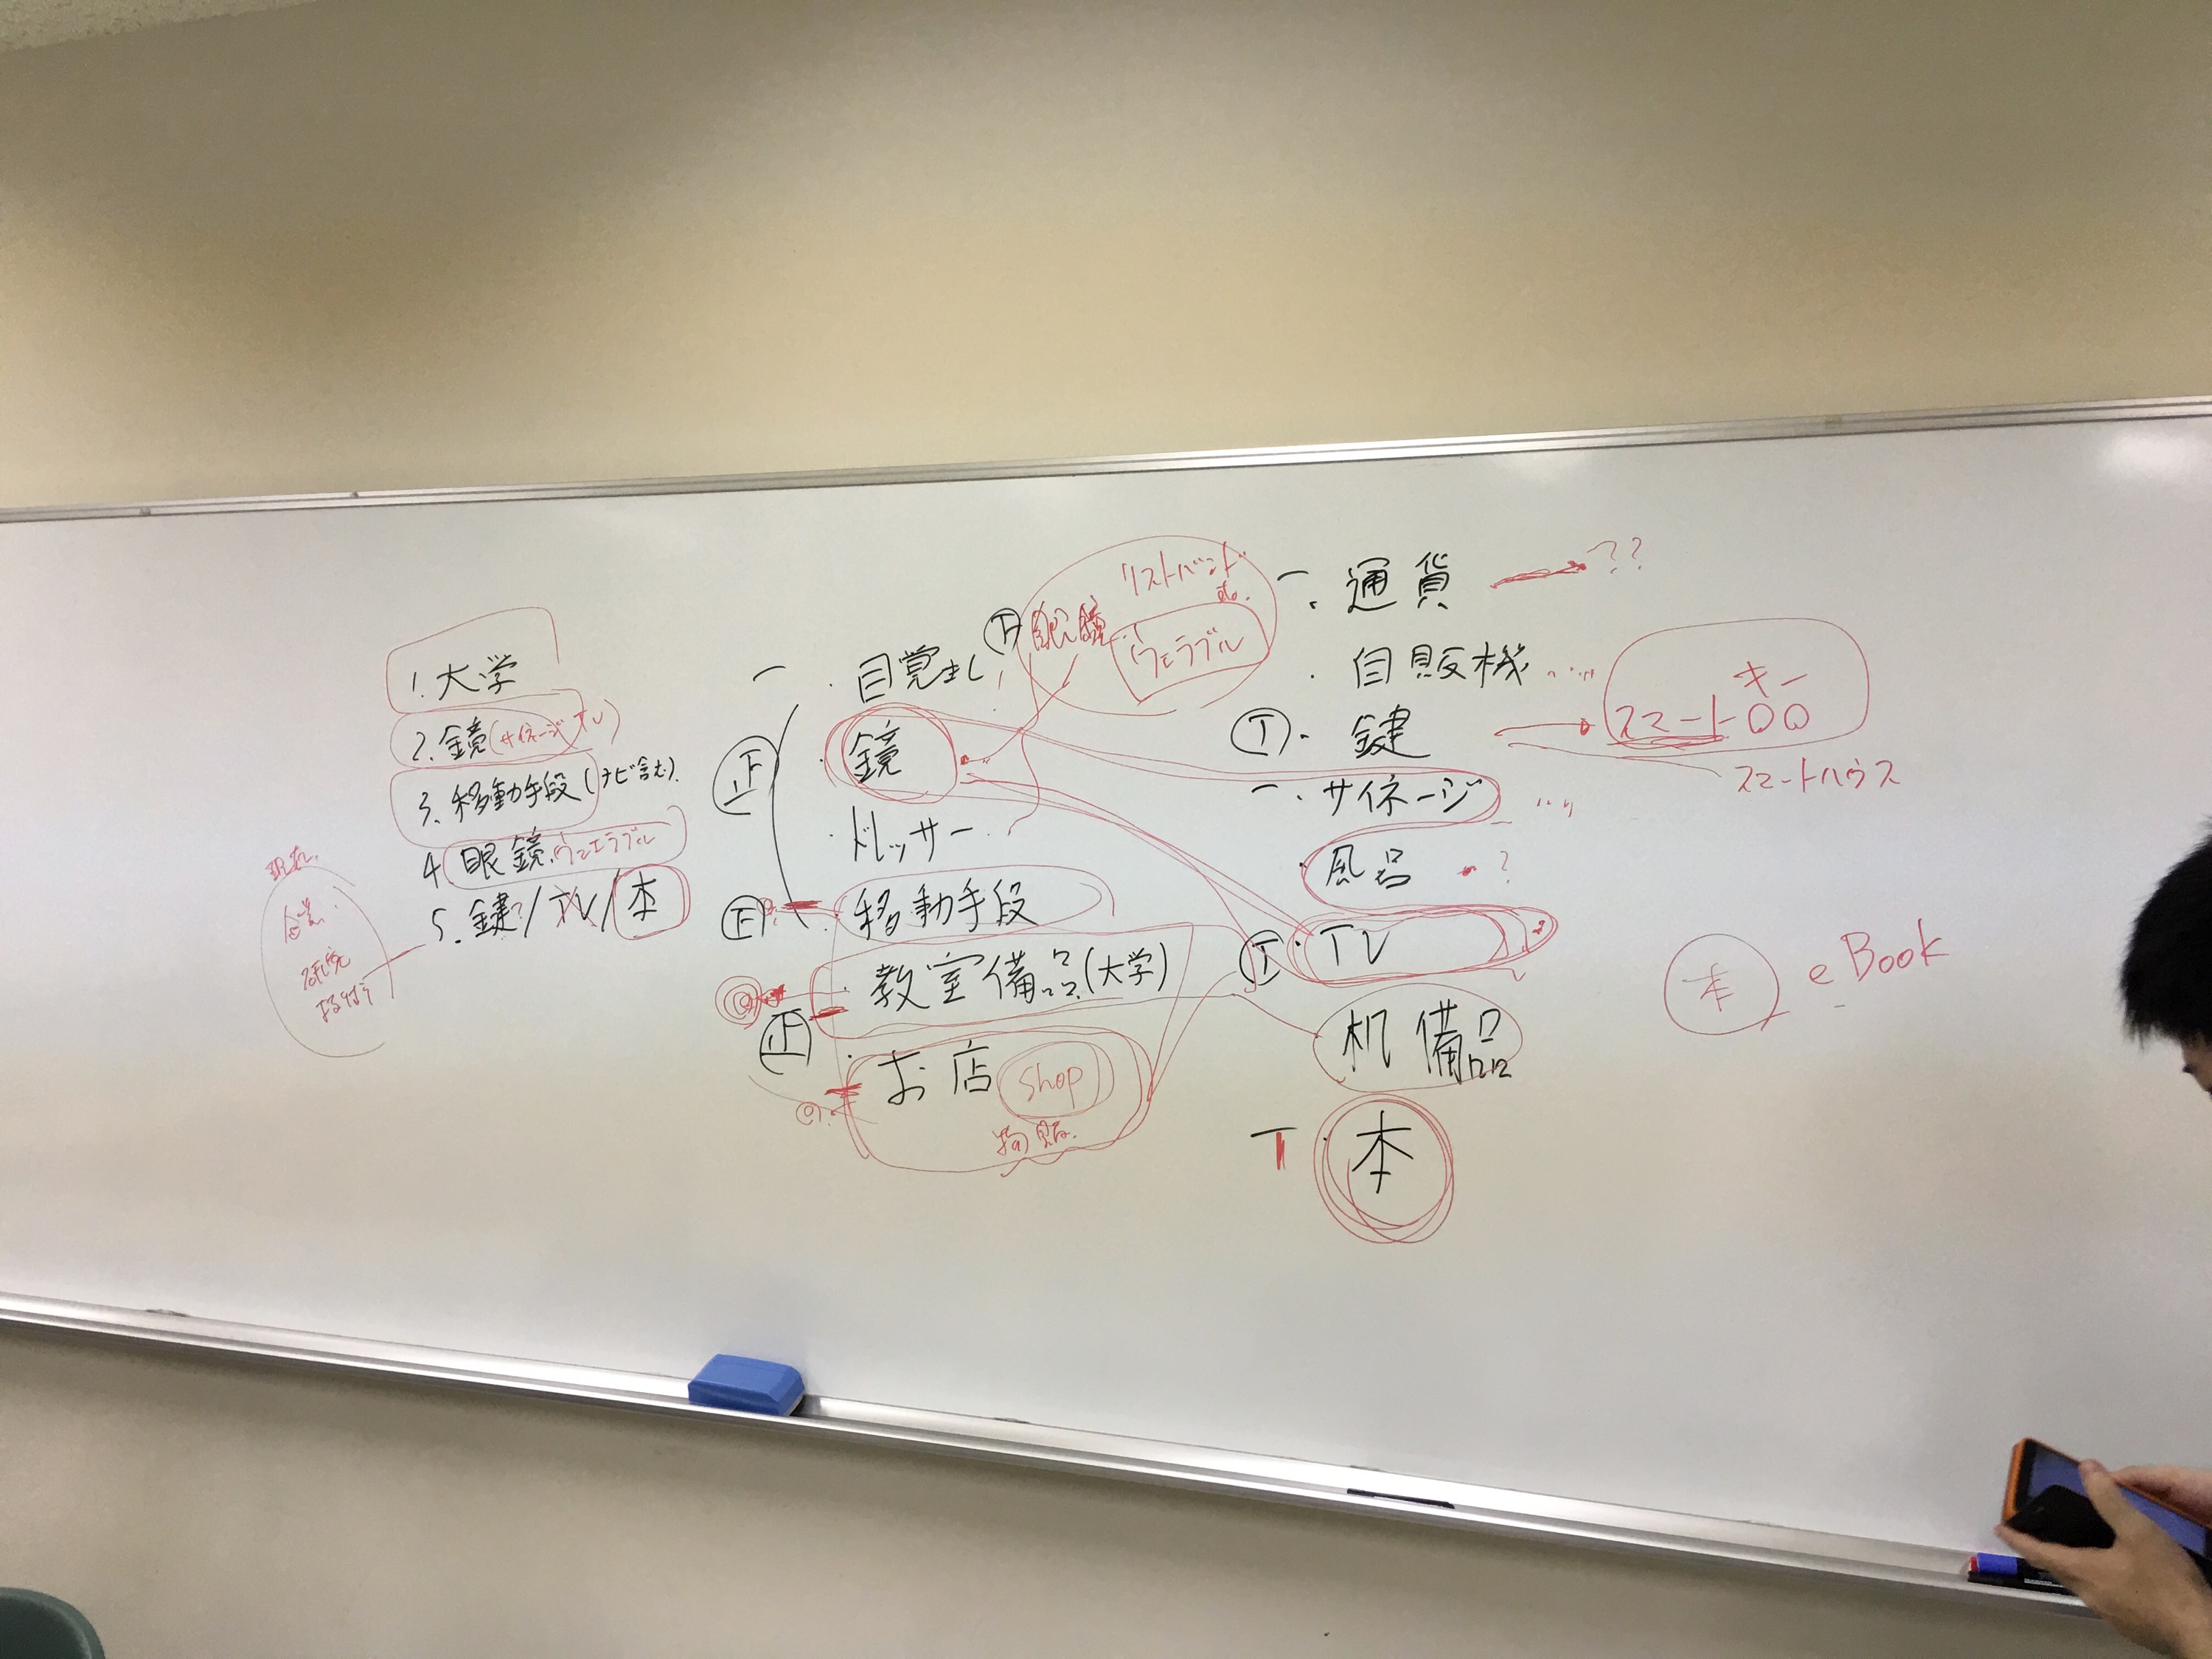 1. 大学
2. 鏡(サイネージ
3. 移動手段(ナビ含む).
4 眼鏡.ウェエラブル
5. 鍵?/TV/本
現在.
一 ・目覚まし
正 ・鏡
・ドレッサー
正 ・移動手段
・教室備品(大学)
正 ・お店 shop
物販.
下 眼鏡
リストバンド
etc.
ウェラブル
一 ・通貨 ??
・自販機 ....
丅 ・鍵
キー
スマート〇〇
スマートハウス
一 ・サイネージ
・風呂 ?
丅 ・TV
机 備品
丅 ・本
本 eBook